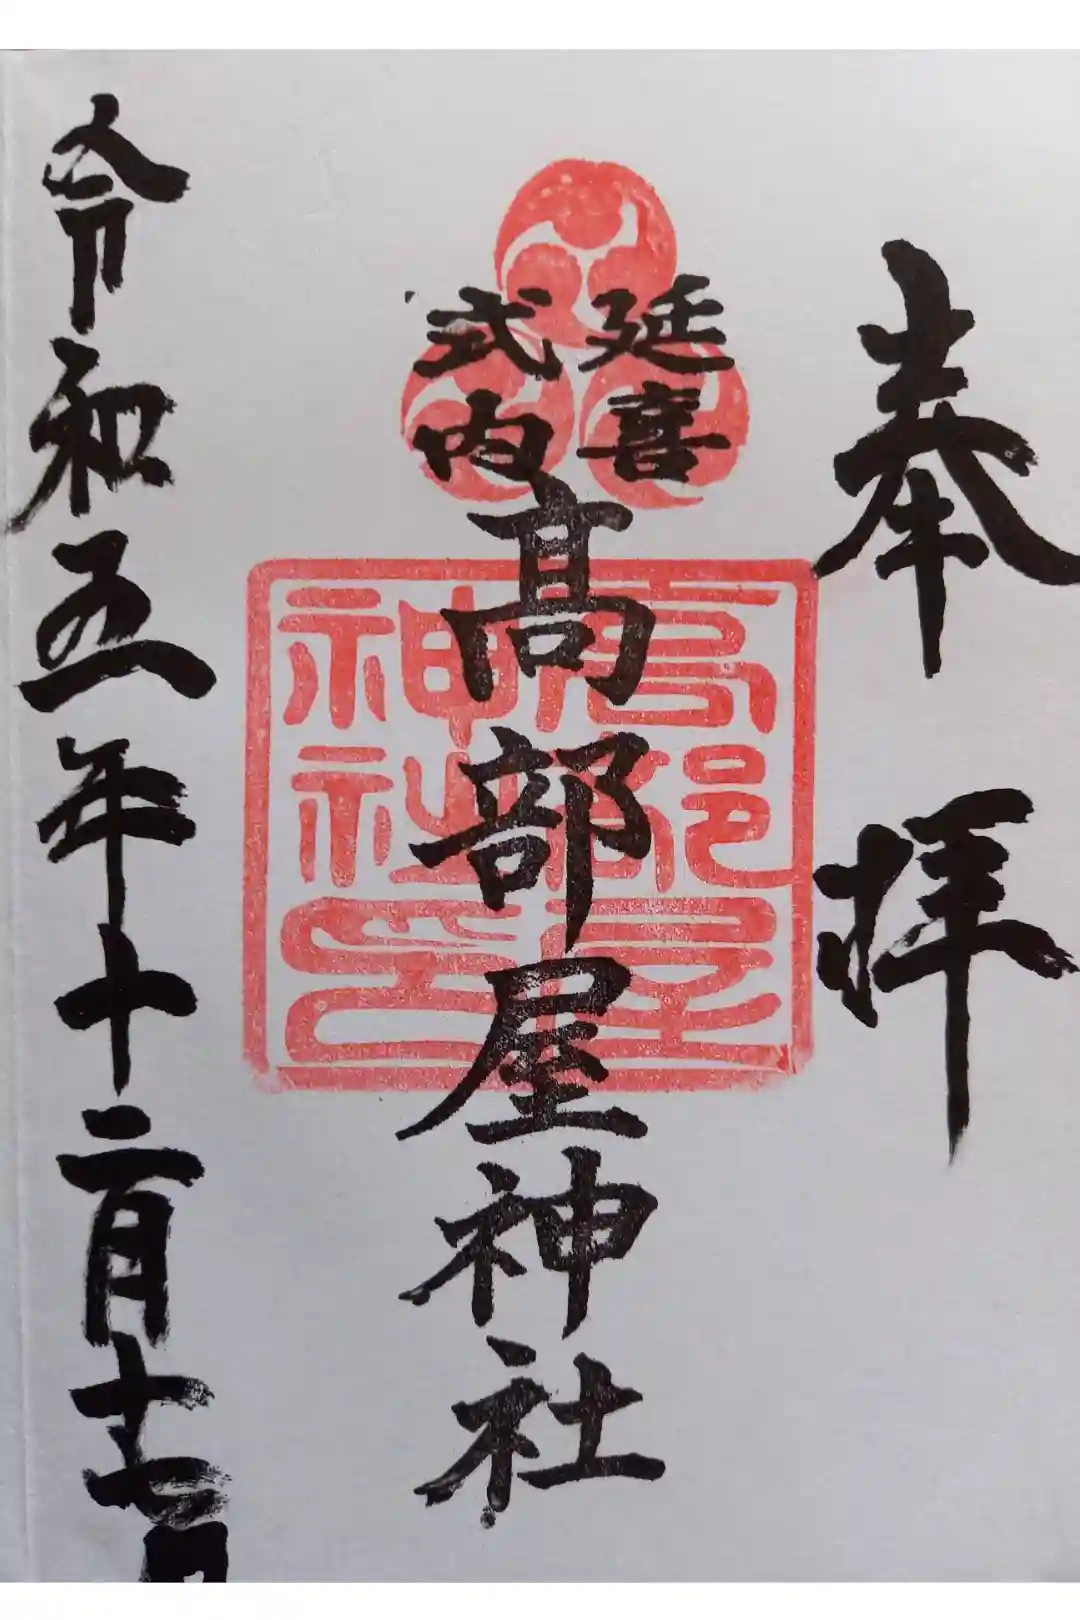 奉拝
延喜
式内
髙部屋神社
高部屋
神社印
令和五年十二月十七日